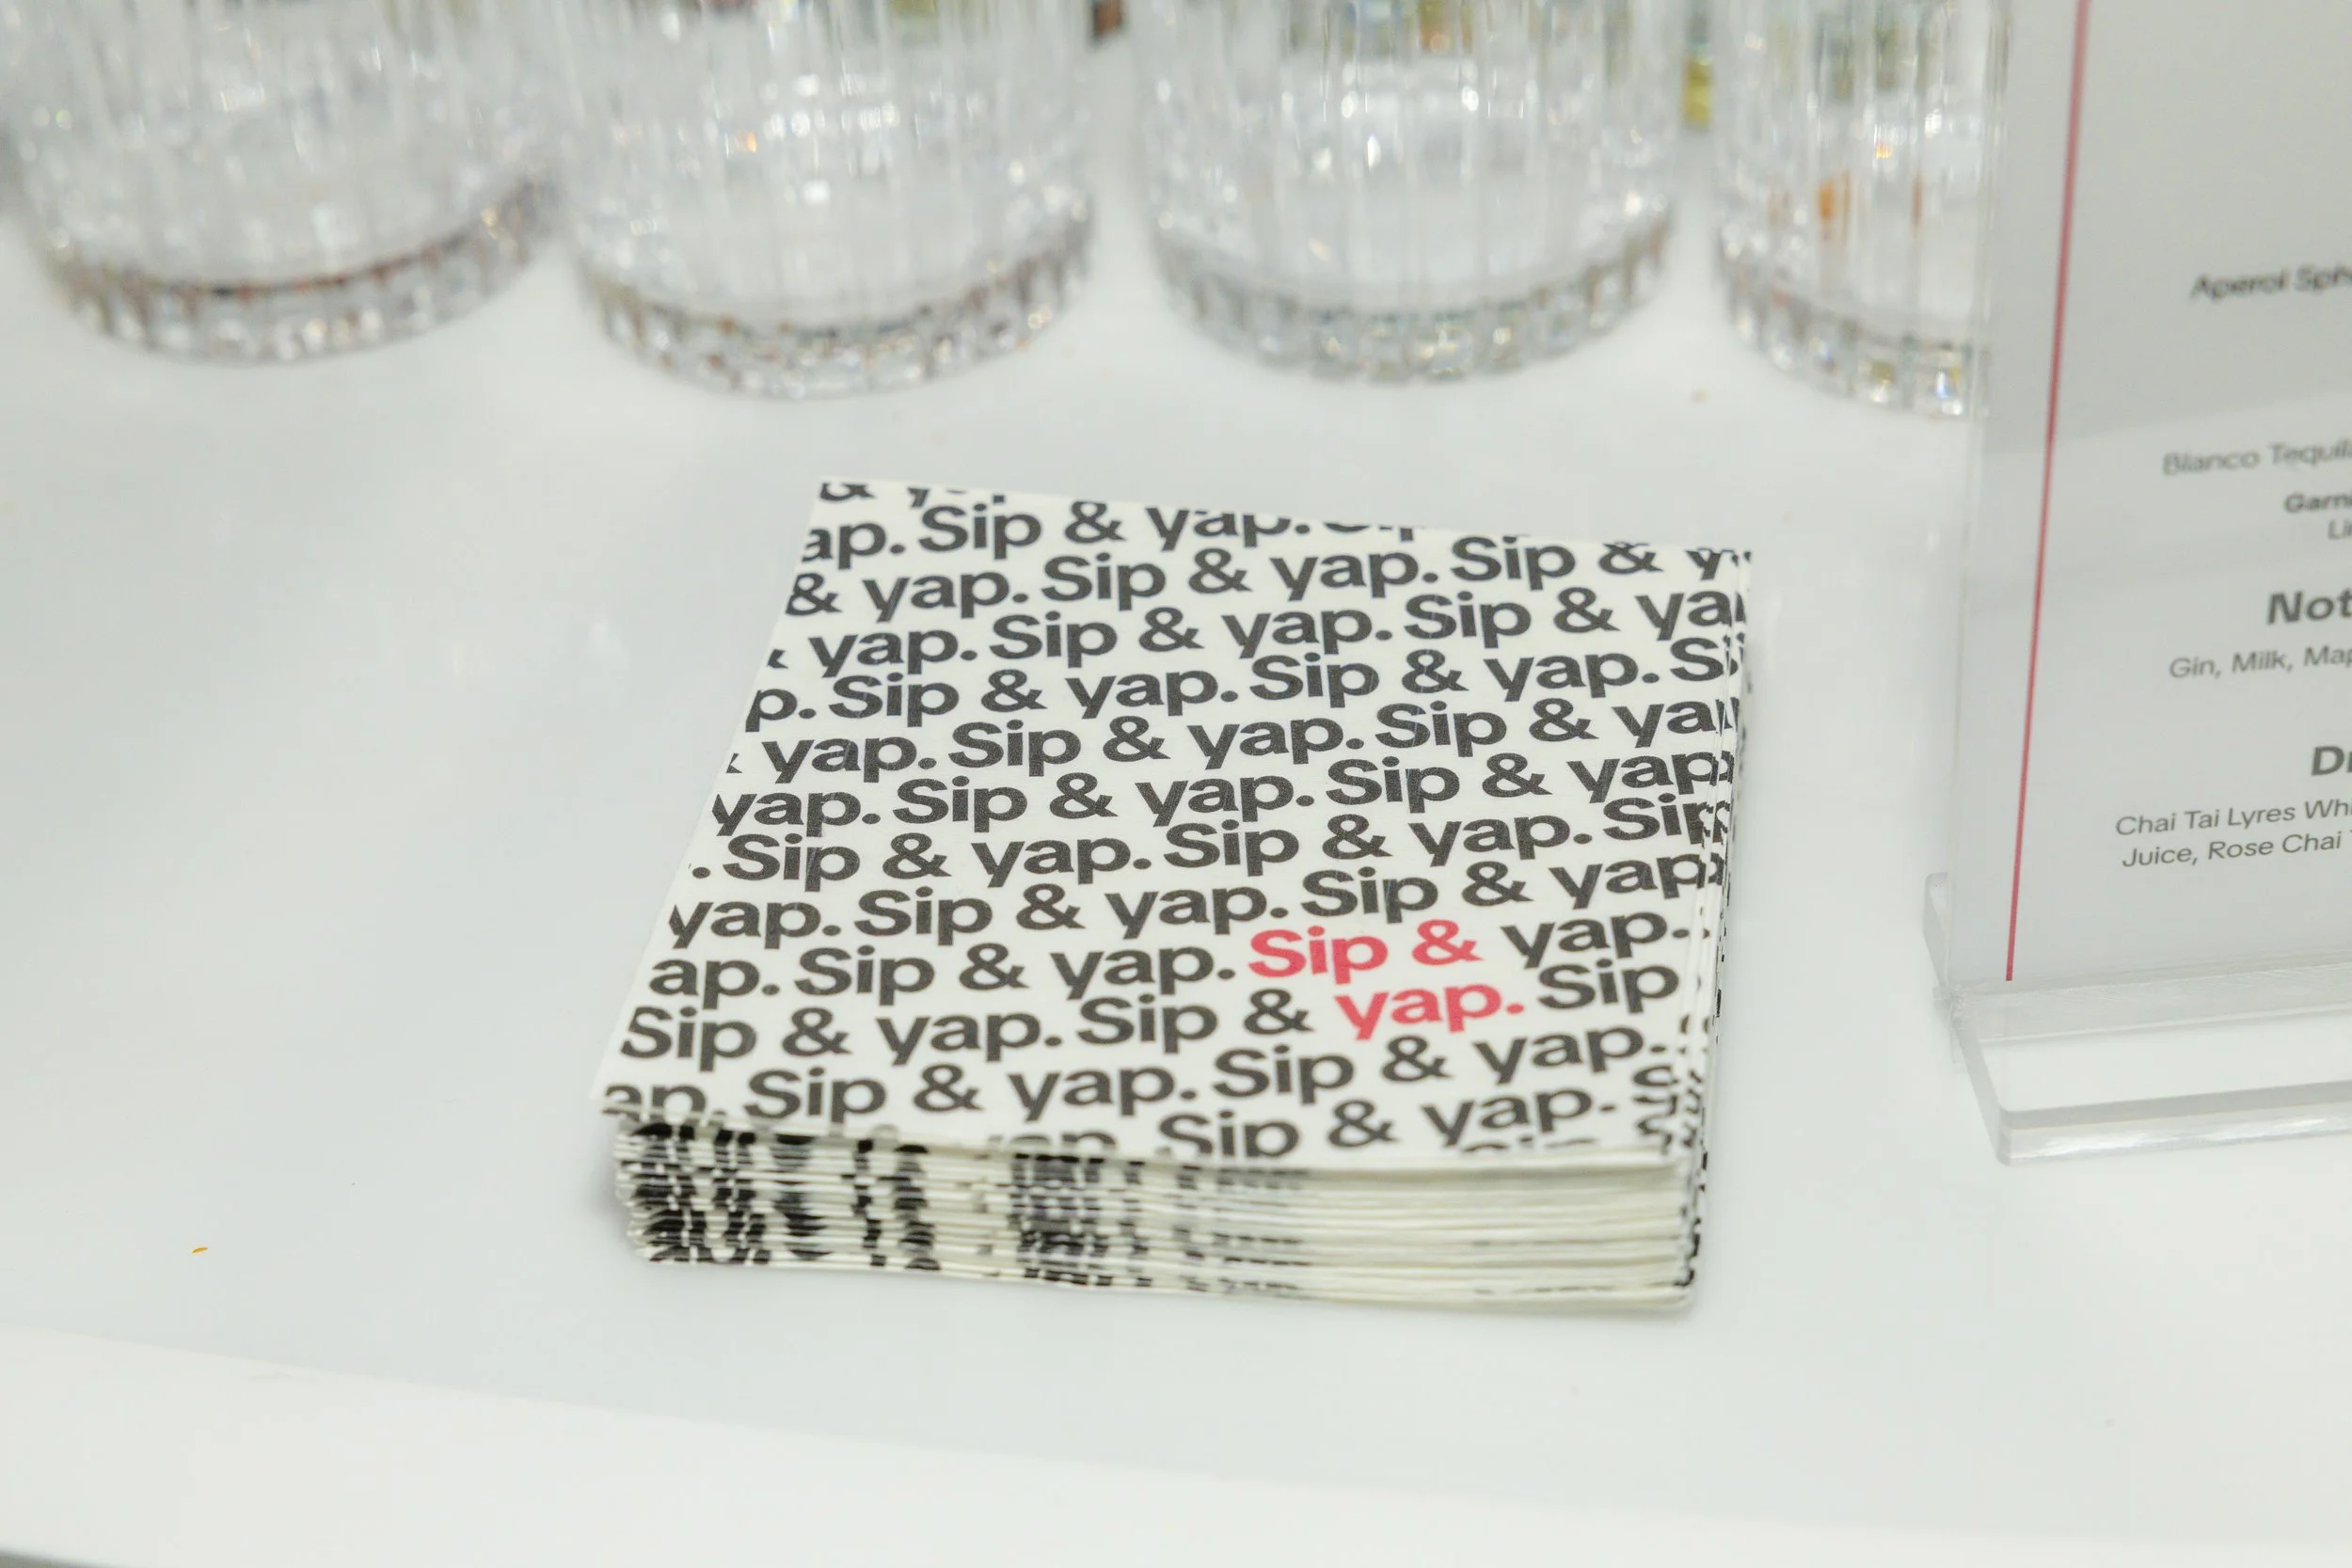 & yap.
ap. Sip & yap. Sip
& yap. Sip & yap. Sip & y
yap. Sip & yap. Sip & ya
p. Sip & yap. Sip & yap. Si
yap. Sip & yap. Sip & ya
yap. Sip & yap. Sip & yap
. Sip & yap. Sip & yap. Sip
yap. Sip & yap. Sip & yap
ap. Sip & yap. Sip & yap.
Sip & yap. Sip & yap. Sip
ap. Sip & yap. Sip & yap.
yap. Sip & yap. S
Aperol Sph
Blanco Tequila
Garni
Li
Not
Gin, Milk, Map
Dr
Chai Tai Lyres Whi
Juice, Rose Chai T